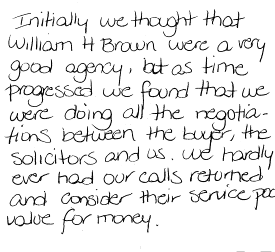 Initially we thought that
William H Brown were a very
good agency, but as time
progressed we found that we
were doing all the negotia-
tions between the buyer, the
solicitors and us. We hardly
ever had our calls returned
and consider their service poo
value for money.